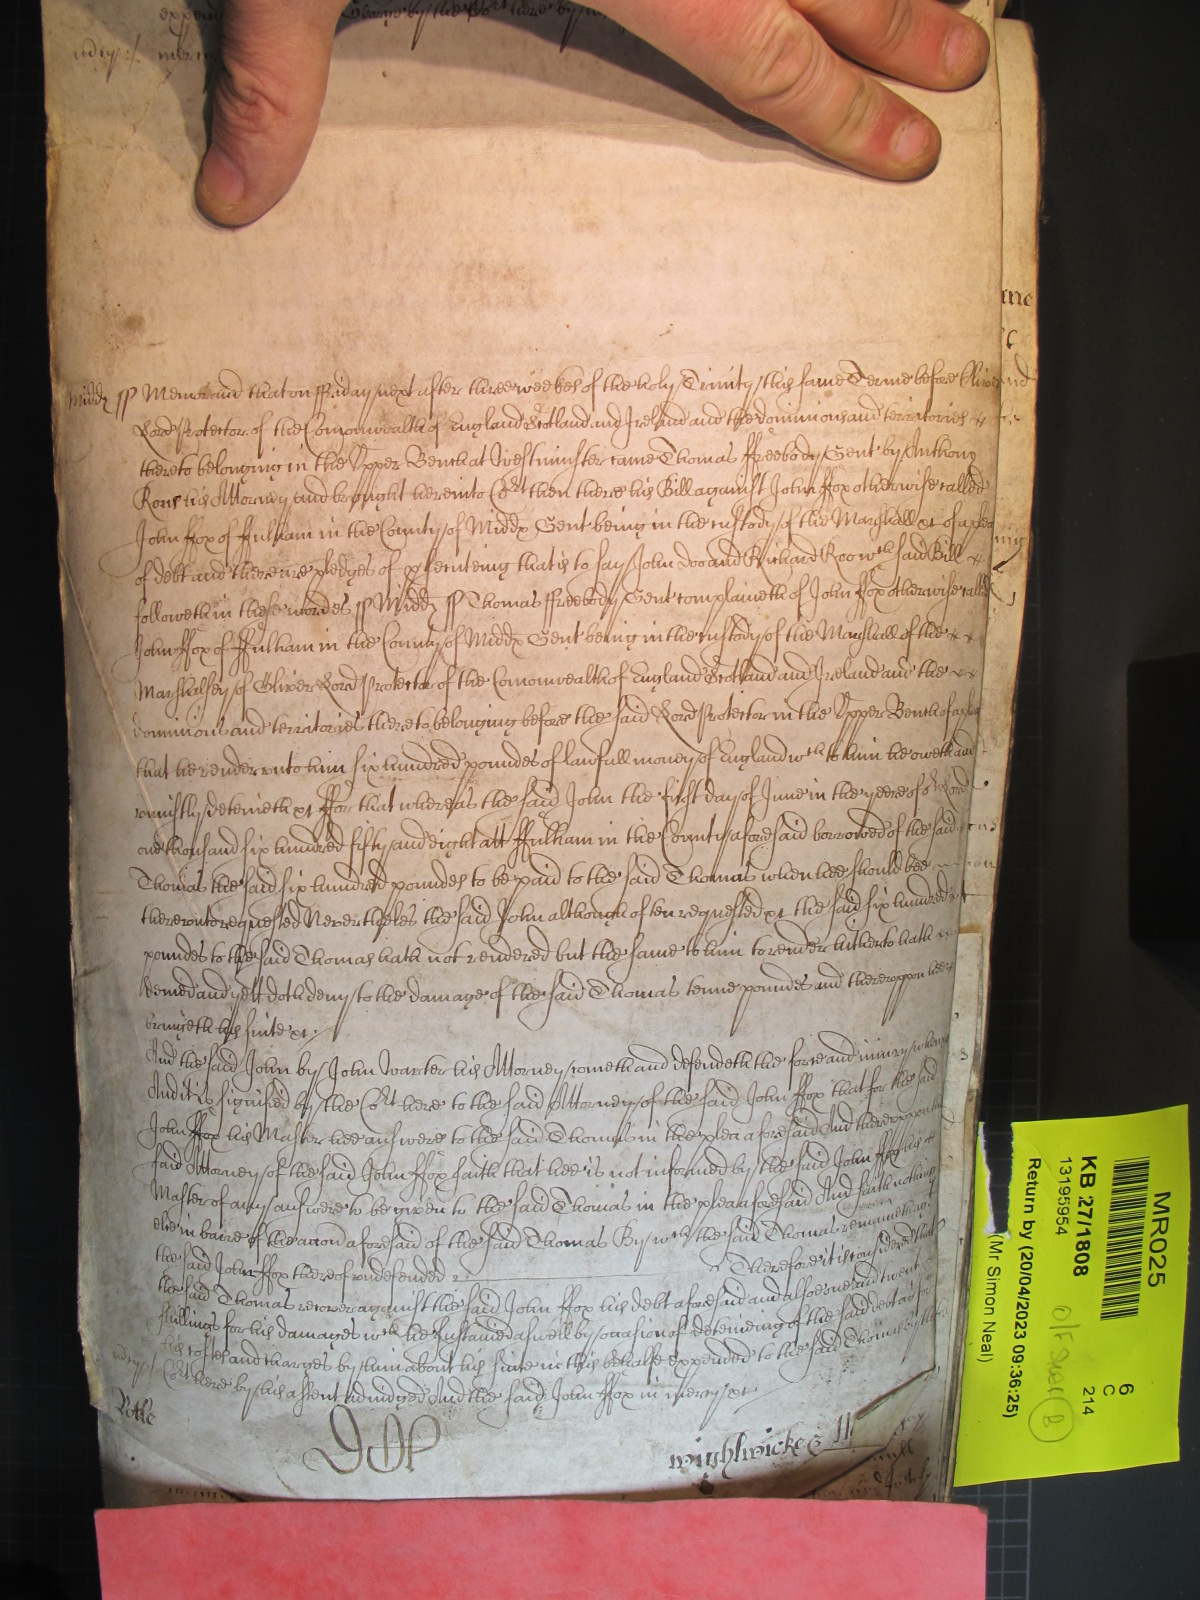 expend George by the Cort here by
mercy
Midd ss Memorand that on ffriday next after three weekes of the holy Trinity this same Terme before Oliver
Lord Protector of the Comonwealth of England Scotland and Ireland and the dominions and territories
thereto belonging in the Upper Bench at Westminster came Thomas ffreebody Gent by Anthony
his Attorney and brought here into Cort then there his Bill against John ffox otherwise called
John ffox of ffulham in the County of Middx Gent being in the custody of the Marshall &c of a plea
of debt and there are pledges of prosecuteing that is to say John Doo and Richard Roo wch said Bill
followeth in these wordes ss Midd ss Thomas ffreebody Gent complaineth of John ffox otherwise called
John ffox of ffulham in the County of Middx Gent being in the custody of the Marshall of the
Marshalsey of Oliver Lord Protector of the Comonwealth of England Scotland and Ireland and the
dominions and territories thereto belonging before the said Lord Protector in the Upper Bench of a plea
that he render unto him six hundred poundes of lawfull money of England wch to him he oweth and
uniustly deteineth &c ffor that whereas the said John the first day of June in the yeere of or Lord
one thousand six hundred fifty and eight att ffulham in the County aforesaid borrowed of the said
Thomas the said six hundred poundes to be paid to the said Thomas when hee should bee
thereunto requested Neverthelesse the said John although often requested &c the said six hundred
poundes to the said Thomas hath not rendered but the same to him to render hitherto hath
denied and yett doth deny to the damage of the said Thomas tenne poundes and thereuppon hee
bringeth his suite &c
And the said John by John Warter his Attorney cometh and defendeth the force and iniury when
And it is signified by the Cort here to the said Attorney of the said John ffox that for the said
John ffox his Master hee answere to the said Thomas in the plea aforesaid And thereuppon the
said Attorney of the said John ffox saith that hee is not informed by the said John ffox his
Master of any answere to be given to the said Thomas in the plea aforesaid And saith nothing
else in barre of the accon aforesaid of the said Thomas By wch the said Thomas remaineth
the said John ffox thereof undefended Therefore it is considered that
the said Thomas recover against the said John ffox his debt aforesaid and alsoe and twenty
shillings for his damages wch he susteined aswell by occasion of deteineing of the said debt as for
his costes and charges by him about his suite in this behalfe expended to the said Thomas by the
Cort here by his assent adiudged And the said John ffox in mercy &c
Rolle
wightwicke
MR025
KB 27/1808
13195954
6
C
214
Return by (20/04/2023 09:36:25)
(Mr Simon Neal)